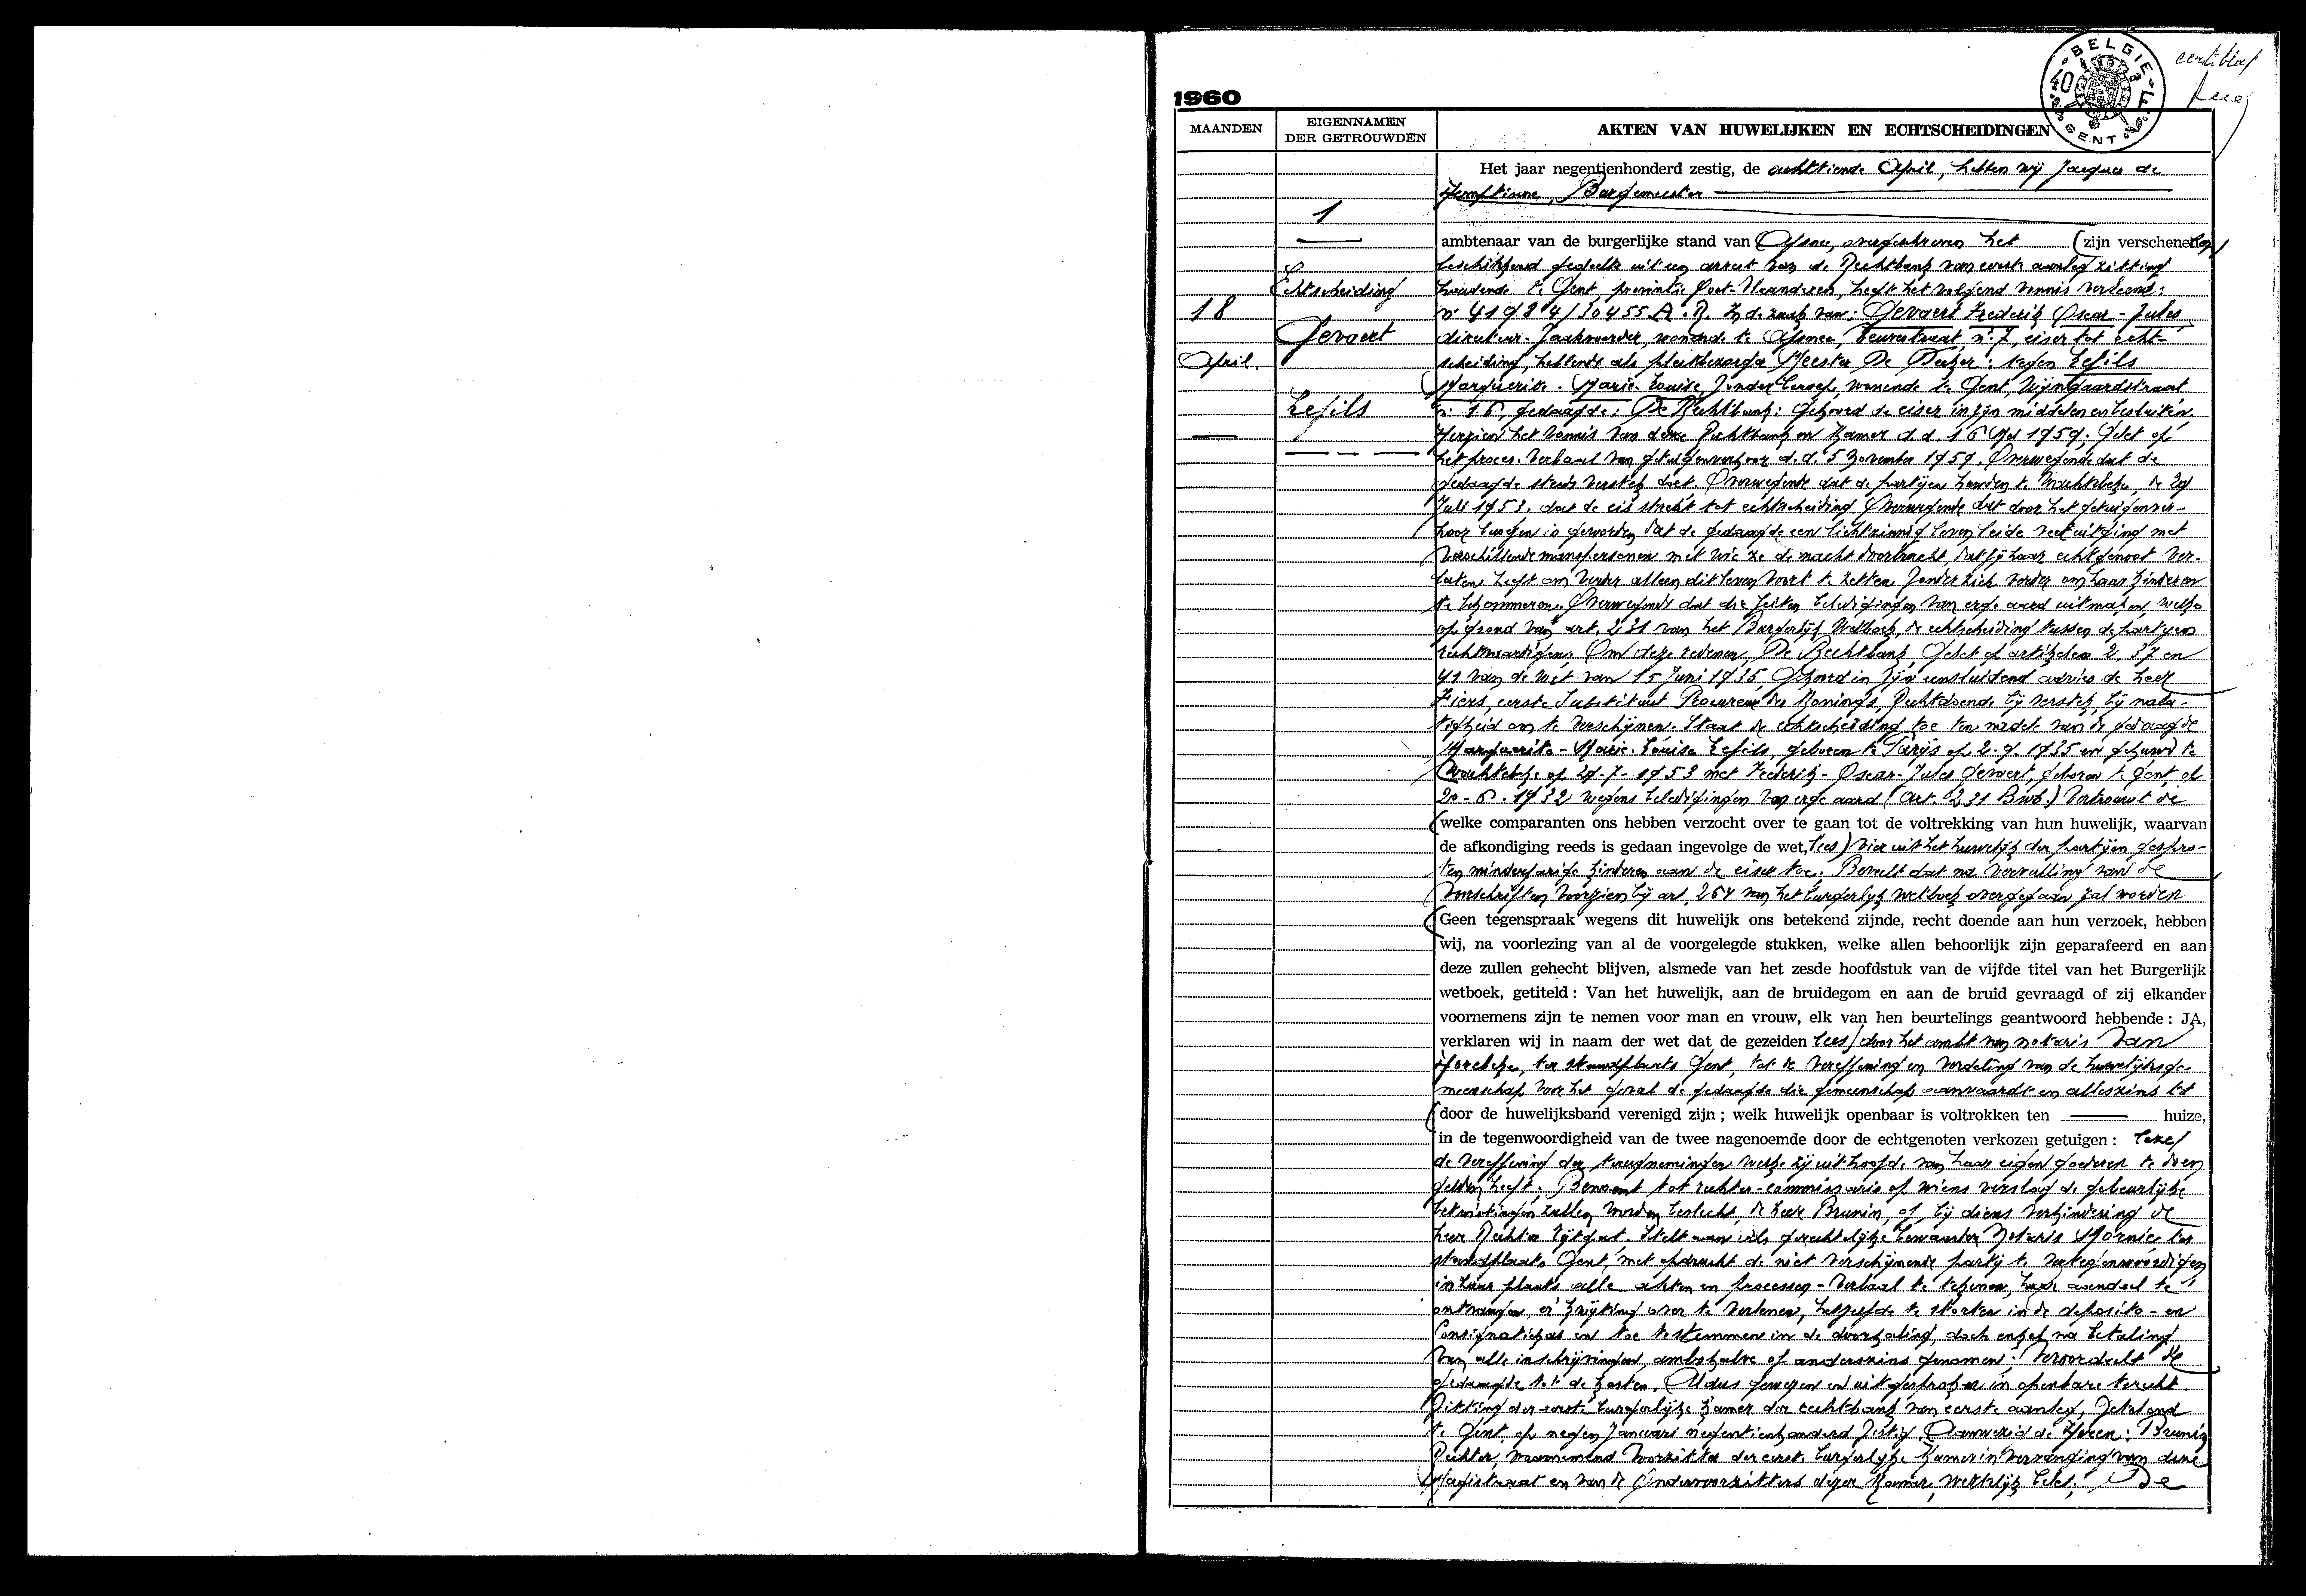 eerste blad
BELGIE
40 F
GENT
1960
MAANDEN
EIGENNAMEN
DER GETROUWDEN
AKTEN VAN HUWELIJKEN EN ECHTSCHEIDINGEN
1
Echtscheiding
18
Gevaert
April.
Lefils
Het jaar negentienhonderd zestig, de achttiende April, hebben wij Jacques de
Hemptinne, Burgemeester
ambtenaar van de burgerlijke stand van Afsnee, overgeschreven het (zijn verschenen
beschikkend gedeelte uit een arrest van de Rechtbank van eerste aanleg zitting
houdende te Gent, provintie Oost-Vlaanderen, heeft het volgend vonnis verleend:
nr 41984/30455 A.R. In de zaak van: Gevaert Frederik Oscar-Jules
directeur-zaakvoerder, wonende te Afsnee, Beurestraat, nr 7, eiser tot echt-
scheiding, hebbende als pleitbezorger Meester De Decker: tegen Lefils
Marguerite-Marie-Louise, zonder beroep, wonende te Gent, Wijngaardstraat
nr 16, gedaagde; De Rechtbank: Gehoord de eiser in zijn middelen en besluiten.
Herzien het vonnis van deze Rechtbank en Kamer d.d. 16 Mei 1959. Gelet op
het proces-verbaal van getuigenverhoor d.d. 5 November 1959. Overwegende dat de
gedaagde steeds verstek doet. Overwegende dat de partijen huwden te Wachtebeke, de 29
Juli 1953. dat de eis strekt tot echtscheiding. Overwegende dat door het getuigenver-
hoor bewezen is geworden dat de gedaagde een lichtzinnig leven leide veel uitging met
verschillende manspersonen met wie ze de nacht doorbracht, dat zij haar echtgenoot ver-
laten heeft om verder alleen dit leven voort te zetten, zonder zich verder om haar kinderen
te bekommeren. Overwegende dat die feiten beledigingen van erge aard uitmaken, welke
op grond van art. 231 van het Burgerlijk Wetboek, de echtscheiding tussen de partijen
rechtvaardigen. Om deze redenen, De Rechtbank, Gelet op artikelen 2, 37 en
41 van de wet van 15 Juni 1935, Gehoord in zijn eensluidend advies de heer
Fiers, eerste Substituut Procureur des Konings, Rechtdoende bij verstek, bij nala-
tigheid om te verschijnen. Staat de echtscheiding toe ten nadele van de gedaagde
Marguerite-Marie-Louise Lefils, geboren te Parijs op 2-9-1935 en gehuwd te
Wachtebeke op 29-7-1953 met Frederik-Oscar-Jules Gevaert, geboren te Gent op
20-6-1932 wegens beledigingen van erge aard (art. 231 B.W.) Vertrouwt de
welke comparanten ons hebben verzocht over te gaan tot de voltrekking van hun huwelijk, waarvan
de afkondiging reeds is gedaan ingevolge de wet, lees) vier uit het huwelijk der partijen gespro-
ten minderjarige kinderen aan de eiser toe. Beveelt dat na vervulling van de
voorschriften voorzien bij art. 264 van het burgerlijk wetboek overgegaan zal worden
Geen tegenspraak wegens dit huwelijk ons betekend zijnde, recht doende aan hun verzoek, hebben
wij, na voorlezing van al de voorgelegde stukken, welke allen behoorlijk zijn geparafeerd en aan
deze zullen gehecht blijven, alsmede van het zesde hoofdstuk van de vijfde titel van het Burgerlijk
wetboek, getiteld : Van het huwelijk, aan de bruidegom en aan de bruid gevraagd of zij elkander
voornemens zijn te nemen voor man en vrouw, elk van hen beurtelings geantwoord hebbende : JA,
verklaren wij in naam der wet dat de gezeiden lees/ door het ambt van notaris Van
Hoecke, ter standplaats Gent, tot de vereffening en verdeling van de huwelijksge-
meenschap voor het geval de gedaagde die gemeenschap aanvaardt en alleszins tot
door de huwelijksband verenigd zijn ; welk huwelijk openbaar is voltrokken ten huize,
in de tegenwoordigheid van de twee nagenoemde door de echtgenoten verkozen getuigen : lees/
de vereffening der terugnemingen welke zij uit hoofde van haar eigen goederen te doen
gelden heeft. Benoemt tot rechter-commissaris op wiens verslag de gebeurlijke
betwistingen zullen worden beslecht, de heer Brunin, of, bij diens verhindering de
heer Rechter Lijtgat. Stelt aan als gerechtelijke bewaarder Notaris Mornie ter
standplaats Gent, met opdracht de niet verschijnende partij te vertegenwoordigen
in haar plaats alle akten en processen-verbaal te tekenen, haar aandeel te
ontvangen, er kwijting over te verlenen, hetzelfde te storten in de deposito- en
Consignatiekas en toe te stemmen in de doorhaling, doch enkel na betaling
van alle inschrijvingen ambtshalve of anderszins genomen; Veroordeelt de
gedaagde tot de kosten. Aldus gewezen en uitgesproken in openbare terecht-
zitting der eerste burgerlijke kamer der rechtbank van eerste aanleg, zetelend
te Gent, op negen Januari negentienhonderd zestig. Aanwezig de Heren: Brunin
Rechter, waarnemend Voorzitter der eerste burgerlijke Kamer in vervanging van deze
Magistraat en van de Ondervoorzitters dezer Kamer, wettelijk belet; De